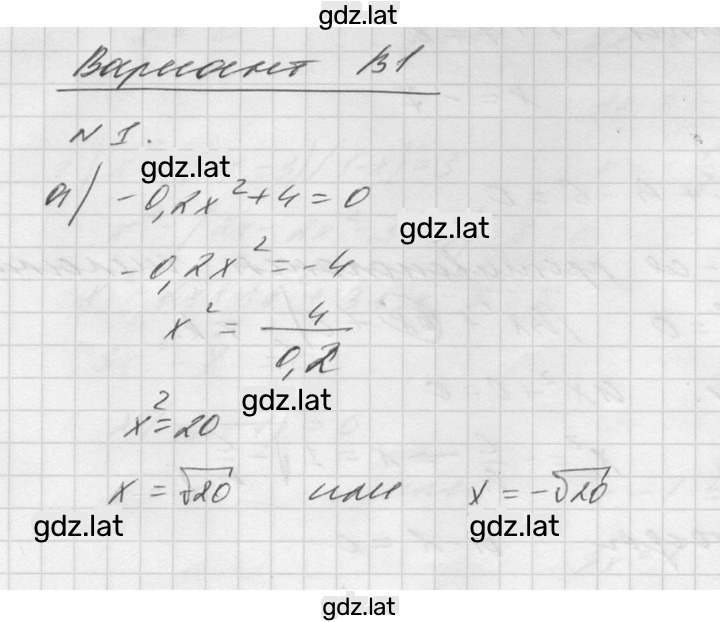 gdz.lat
Вариант В1
N 1.
gdz.lat
а) -0,2x²+4=0
gdz.lat
-0,2x²=-4
x² = 4/0,2
gdz.lat
x²=20
x = √20 или x = -√20
gdz.lat gdz.lat
gdz.lat